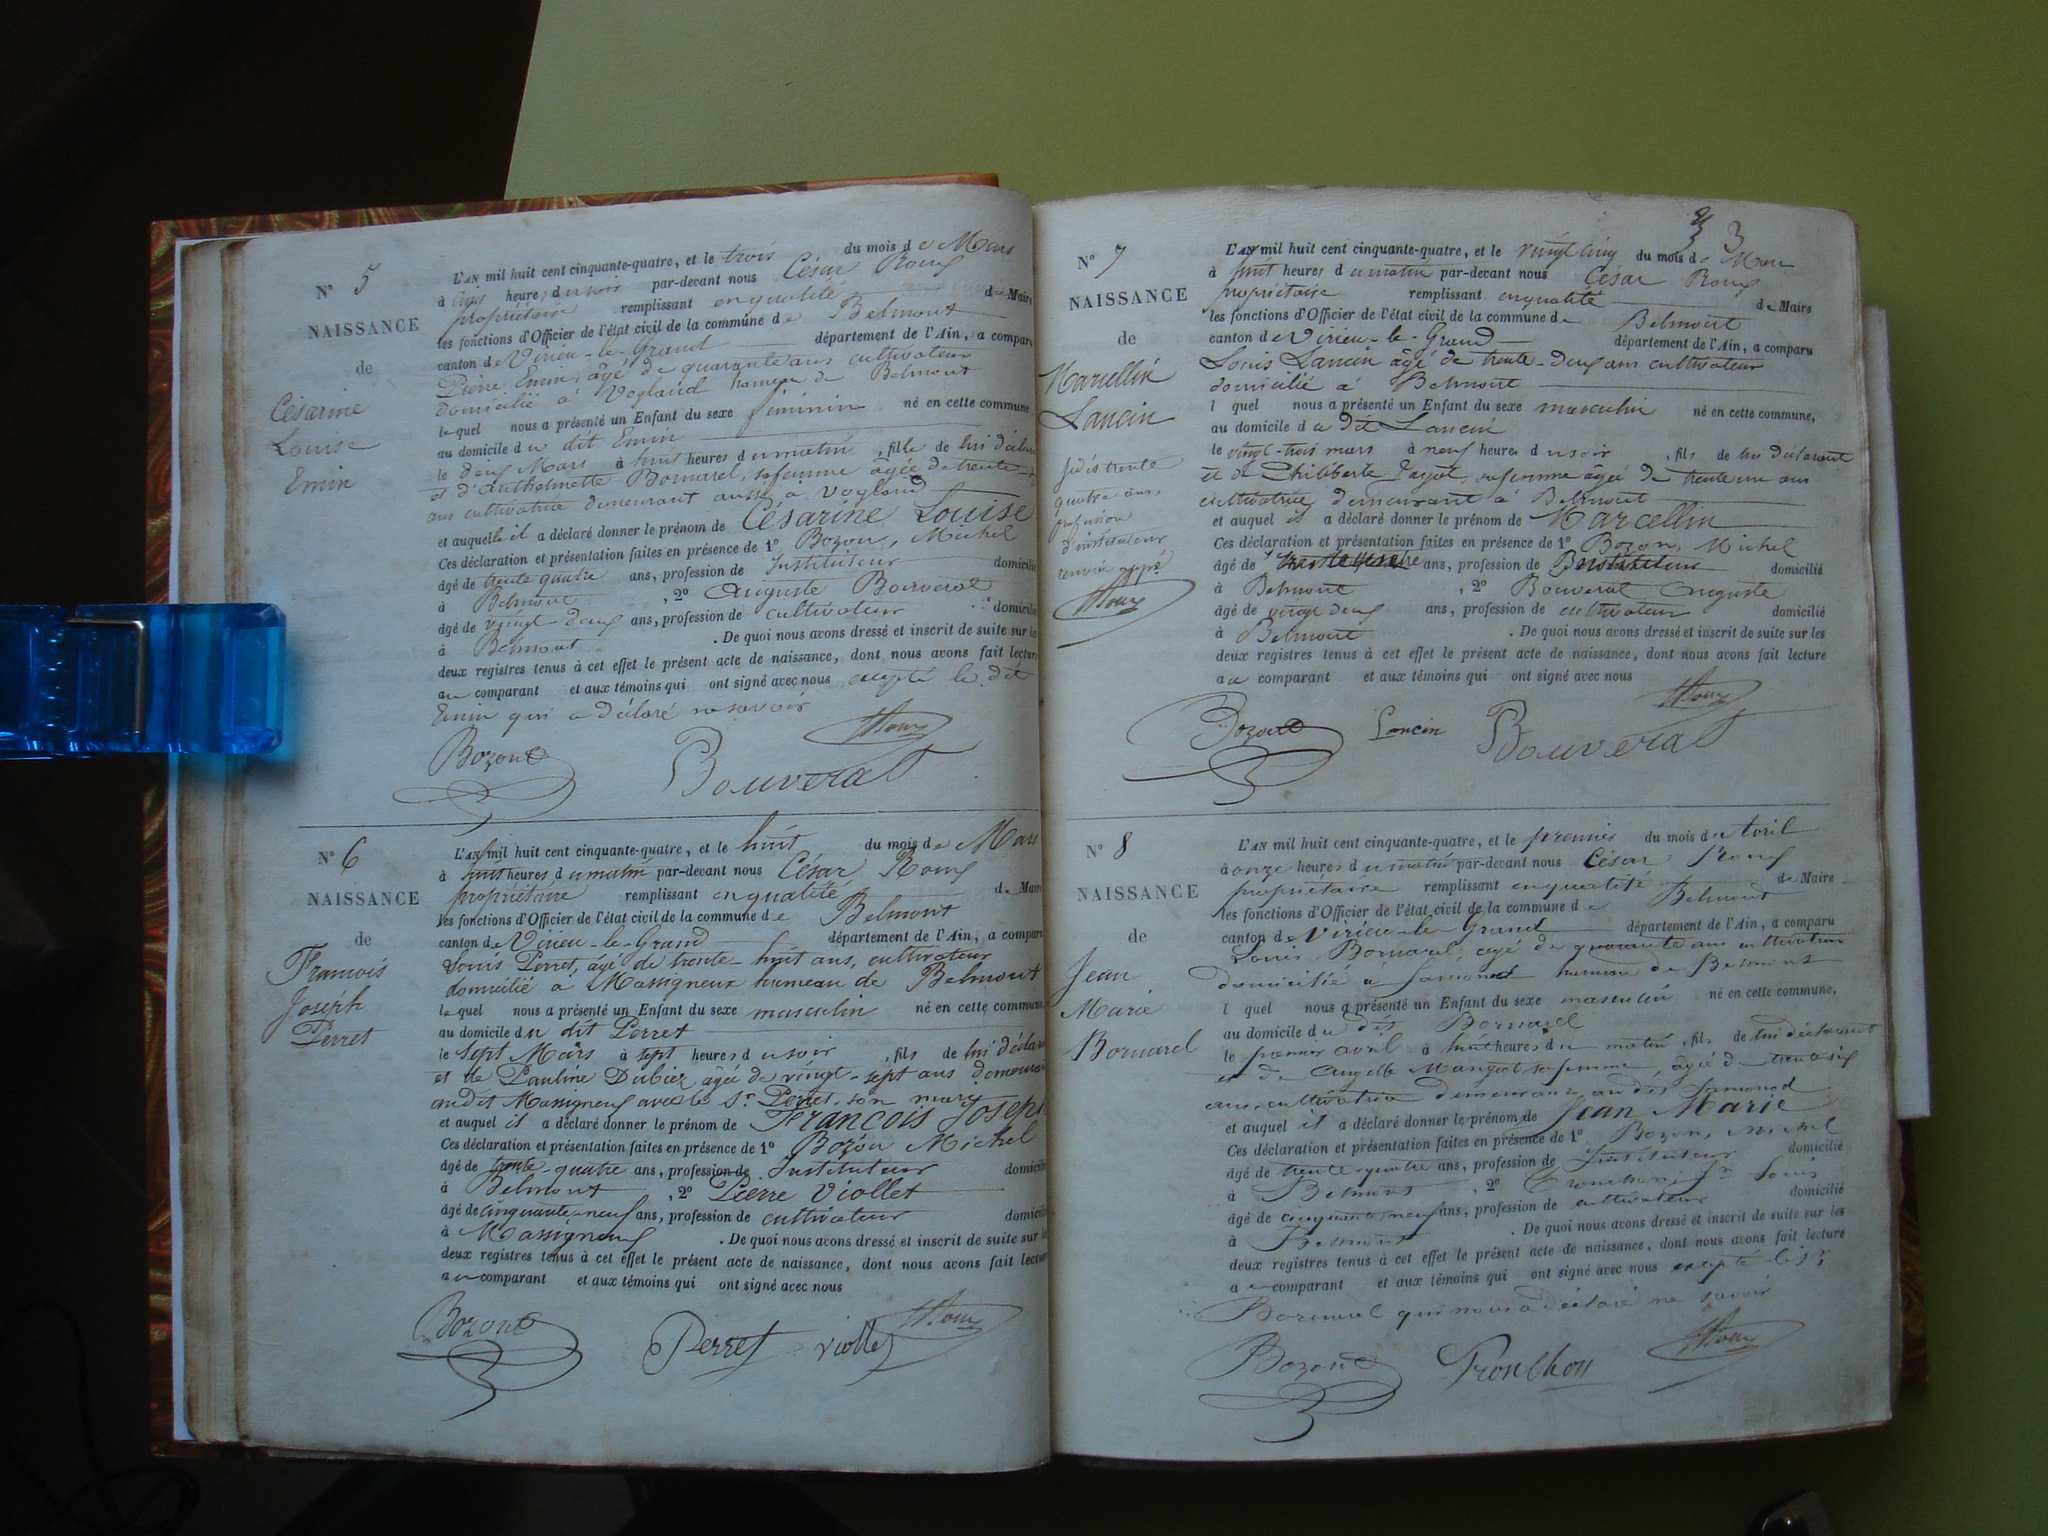 N° 5
NAISSANCE
de
Césarine
Louise
Emin
L'AN mil huit cent cinquante-quatre, et le trois du mois de Mars
à cinq heures du soir par-devant nous César Roux
propriétaire remplissant en qualité de Maire
les fonctions d'Officier de l'état civil de la commune de Belmont
canton de Virieu-le-Grand département de l'Ain, a comparu
Pierre Emin, âgé de quarante ans cultivateur
domicilié à Vogland hameau de Belmont
lequel nous a présenté un Enfant du sexe féminin né en cette commune,
au domicile du dit Emin
le deux Mars à huit heures du matin, fille de lui déclarant
et d'Anthelmette Bornarel, sa femme âgée de trente
ans cultivatrice demeurant aussi à Vogland
et auquelle il a déclaré donner le prénom de Césarine Louise
Ces déclaration et présentation faites en présence de 1° Bozon, Michel
âgé de trente quatre ans, profession de Instituteur domicilié
à Belmont, 2° Auguste Bouverat
âgé de vingt deux ans, profession de cultivateur domicilié
à Belmont. De quoi nous avons dressé et inscrit de suite sur les
deux registres tenus à cet effet le présent acte de naissance, dont nous avons fait lecture
au comparant et aux témoins qui ont signé avec nous excepté le dit
Emin qui a déclaré ne savoir
Roux
Bozon Bouverat
N° 6
NAISSANCE
de
François
Joseph
Perret
L'AN mil huit cent cinquante-quatre, et le huit du mois de Mars
à huit heures du matin par-devant nous César Roux
propriétaire remplissant en qualité de Maire
les fonctions d'Officier de l'état civil de la commune de Belmont
canton de Virieu-le-Grand département de l'Ain, a comparu
Louis Perret, âgé de trente-huit ans, cultivateur
domicilié à Massigneux hameau de Belmont
lequel nous a présenté un Enfant du sexe masculin né en cette commune,
au domicile du dit Perret
le sept Mars à sept heures du soir, fils de lui déclarant
et de Pauline Dubiez âgée de vingt-sept ans demeurant
au dit Massigneux avec le Sr Perret son mary
et auquel il a déclaré donner le prénom de François Joseph
Ces déclaration et présentation faites en présence de 1° Bozon Michel
âgé de trente-quatre ans, profession de Instituteur domicilié
à Belmont, 2° Pierre Viollet
âgé de cinquante-neuf ans, profession de cultivateur domicilié
à Massigneux. De quoi nous avons dressé et inscrit de suite sur les
deux registres tenus à cet effet le présent acte de naissance, dont nous avons fait lecture
au comparant et aux témoins qui ont signé avec nous
Bozon Perret Viollet Roux
3 3
N° 7
NAISSANCE
de
Marcellin
Lancin
Je dis trente
quatre ans,
profession
d'instituteur
renvoi appvé
Roux
L'AN mil huit cent cinquante-quatre, et le vingt cinq du mois de Mars
à huit heures du matin par-devant nous César Roux
propriétaire remplissant en qualité de Maire
les fonctions d'Officier de l'état civil de la commune de Belmont
canton de Virieu-le-Grand département de l'Ain, a comparu
Louis Lancin âgé de trente-deux ans cultivateur
domicilié à Belmont
l quel nous a présenté un Enfant du sexe masculin né en cette commune,
au domicile du dit Lancin
le vingt-trois mars à neuf heures du soir, fils de lui déclarant
et de Philiberte Payot, sa femme âgée de trente un ans
cultivatrice demeurant à Belmont
et auquel il a déclaré donner le prénom de Marcellin
Ces déclaration et présentation faites en présence de 1° Bozon, Michel
âgé de trente quatre ans, profession de Instituteur domicilié
à Belmont, 2° Bouverat Auguste
âgé de vingt deux ans, profession de cultivateur domicilié
à Belmont. De quoi nous avons dressé et inscrit de suite sur les
deux registres tenus à cet effet le présent acte de naissance, dont nous avons fait lecture
au comparant et aux témoins qui ont signé avec nous
Roux
Bozon Lancin Bouverat
N° 8
NAISSANCE
de
Jean
Marie
Bornarel
L'AN mil huit cent cinquante-quatre, et le premier du mois d'avril
à onze heures du matin par-devant nous César Roux
propriétaire remplissant en qualité de Maire
les fonctions d'Officier de l'état civil de la commune de Belmont
canton de Virieu-le-Grand département de l'Ain, a comparu
Louis Bornarel, âgé de quarante ans cultivateur
domicilié à hameau de Belmont
l quel nous a présenté un Enfant du sexe masculin né en cette commune,
au domicile du dit Bornarel
le premier avril à huit heures du matin, fils de lui déclarant
et de Angele sa femme, âgée de trente six
ans, cultivatrice demeurant au dit
et auquel il a déclaré donner le prénom de Jean Marie
Ces déclaration et présentation faites en présence de 1° Bozon, Michel
âgé de trente-quatre ans, profession de Instituteur domicilié
à Belmont, 2° Tronchon Louis
âgé de cinquante neuf ans, profession de cultivateur domicilié
à Belmont. De quoi nous avons dressé et inscrit de suite sur les
deux registres tenus à cet effet le présent acte de naissance, dont nous avons fait lecture
au comparant et aux témoins qui ont signé avec nous excepté le Sr
Bornarel qui nous a déclaré ne savoir
Bozon Tronchon Roux